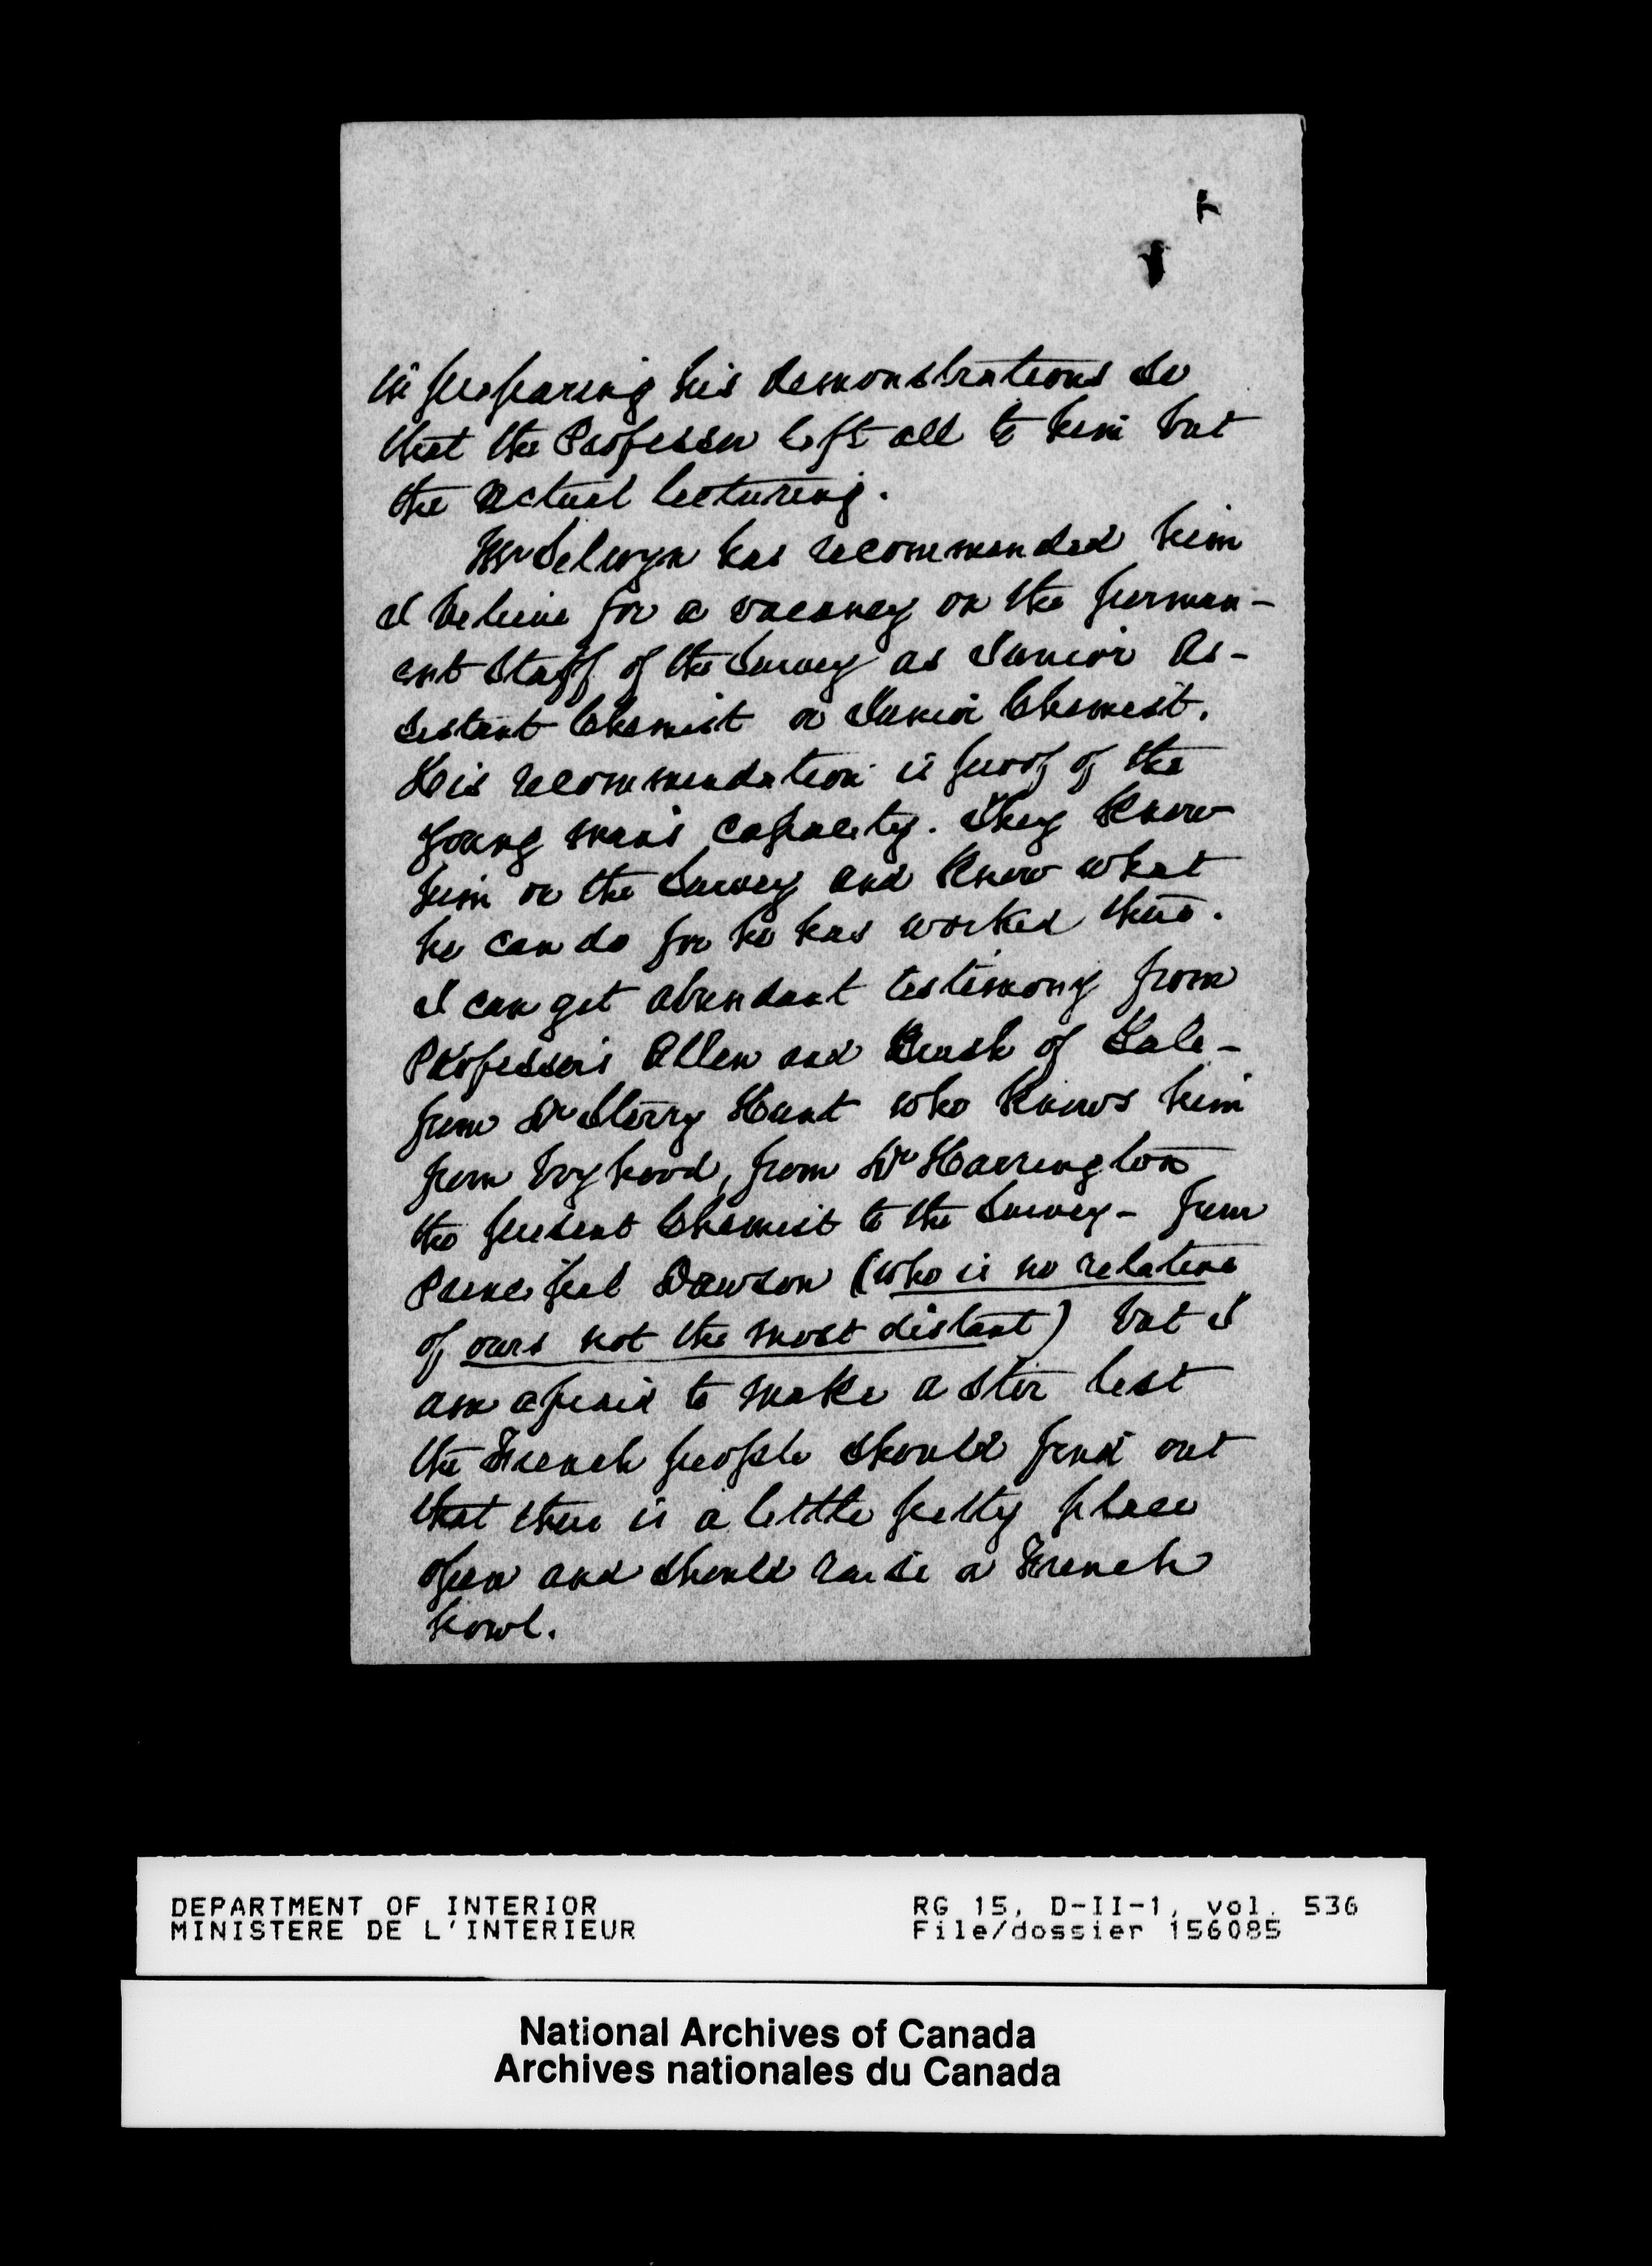 in preparing his demonstrations so
that the Professor left all to him but
the actual lecturing.
Mr Selwyn has recommended him
I believe for a vacancy on the perman-
ent Staff of the Survey as Junior As-
sistant Chemist or Junior Chemist.
His recommendation is proof of the
young man's capacity. They know
him on the Survey and know what
he can do for he has worked there.
I can get abundant testimony from
Professors Allen and Brush of Yale -
from Dr Sterry Hunt who knows him
from boyhood, from Dr Harrington
the present Chemist to the Survey - from
Principal Dawson (who is no relative
of ours not the most distant) but I
am afraid to make a stir lest
the French people should find out
that there is a little petty place
open and should raise a French
howl.
DEPARTMENT OF INTERIOR
MINISTERE DE L'INTERIEUR
RG 15, D-II-1, vol. 536
File/dossier 156085
National Archives of Canada
Archives nationales du Canada